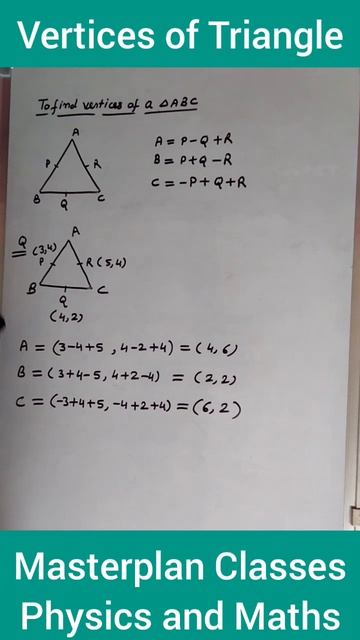 Vertices of Triangle
To find vertices of a △ABC
A
P
R
B
Q
C
A = P-Q+R
B = P+Q-R
C = -P+Q+R
Q
A
(3,4)
P
R(5,4)
B
Q
C
(4,2)
A = (3-4+5 , 4-2+4) = (4,6)
B = (3+4-5, 4+2-4) = (2,2)
C = (-3+4+5, -4+2+4) = (6,2)
Masterplan Classes
Physics and Maths